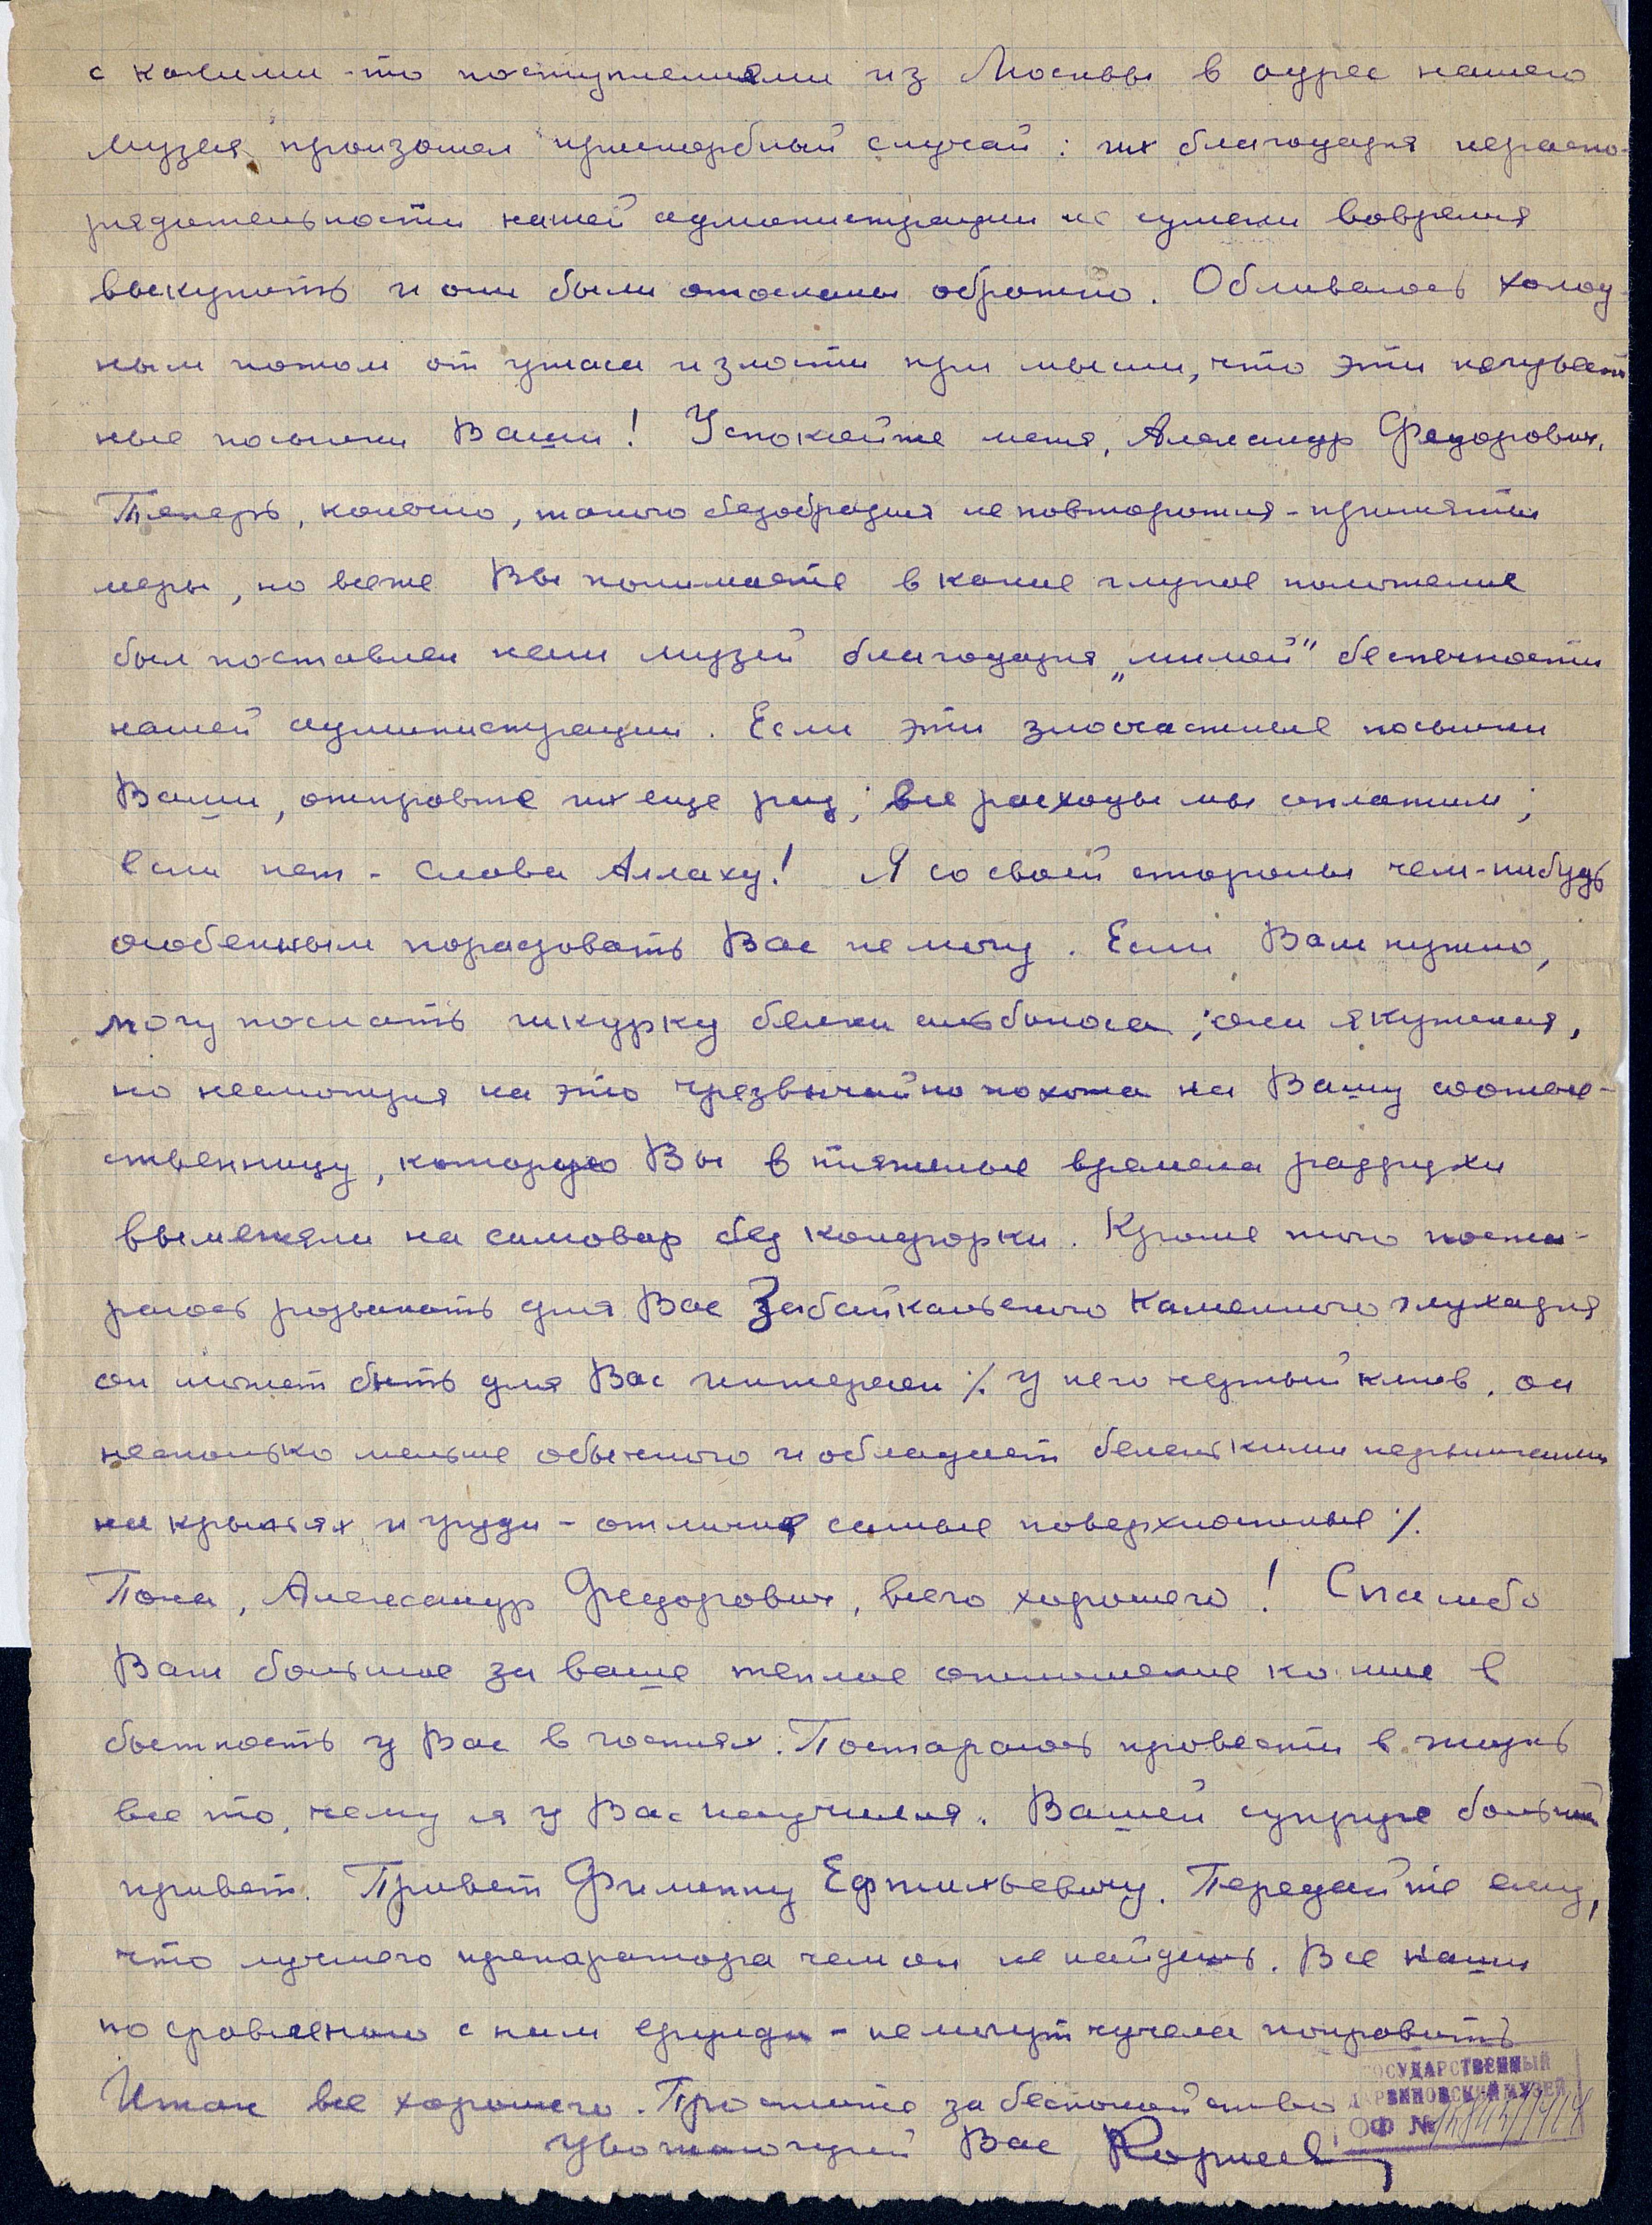 с какими-то поступлениями из Москвы в адрес нашего
музея произошел прискорбный случай: их благодаря нераспо-
рядительности нашей администрации не сумели вовремя
выкупить и они были отосланы обратно. Обливаюсь холод-
ным потом от ужаса и злости при мысли, что эти несчаст
ные посылки Ваши! Успокойте меня, Александр Федорович.
Теперь, конечно, такого безобразия не повторится - приняты
меры, но все же Вы понимаете в какое глупое положение
был поставлен наш музей благодаря „милой" беспечности
нашей администрации. Если эти злосчастные посылки
Ваши, отправьте их еще раз; все расходы мы оплатим;
если нет - слава Аллаху! Я со своей стороны чем-нибудь
особенным порадовать Вас не могу. Если Вам нужно,
могу послать шкурку белки альбиноса; она якутская,
но несмотря на это чрезвычайно похожа на Вашу соотече-
ственницу, которую Вы в тяжелые времена разрухи
выменяли на самовар без конфорки. Кроме того поста-
раюсь разыскать для Вас Забайкальского Каменного глухаря
он может быть для Вас интересен ./. у него черный клюв, он
несколько меньше обычного и обладает беленькими перышками
на крыльях и груди - отличия самые поверхностные ./.
Пока, Александр Федорович, всего хорошего! Спасибо
Вам большое за ваше теплое отношение ко мне в
бытность у Вас в гостях. Постараюсь провести в жизнь
все то, чему я у Вас научился. Вашей супруге большой
привет. Привет Филиппу Ефтихьевичу. Передайте ему,
что лучшего препаратора чем он не найдешь. Все наши
по сравнению с ним ерунда - не могут чучела поправить
Итак все хорошего. Простите за беспокойство
Уважающий Вас Корнеев
ГОСУДАРСТВЕННЫЙ
ДАРВИНОВСКИЙ МУЗЕЙ
ОФ №